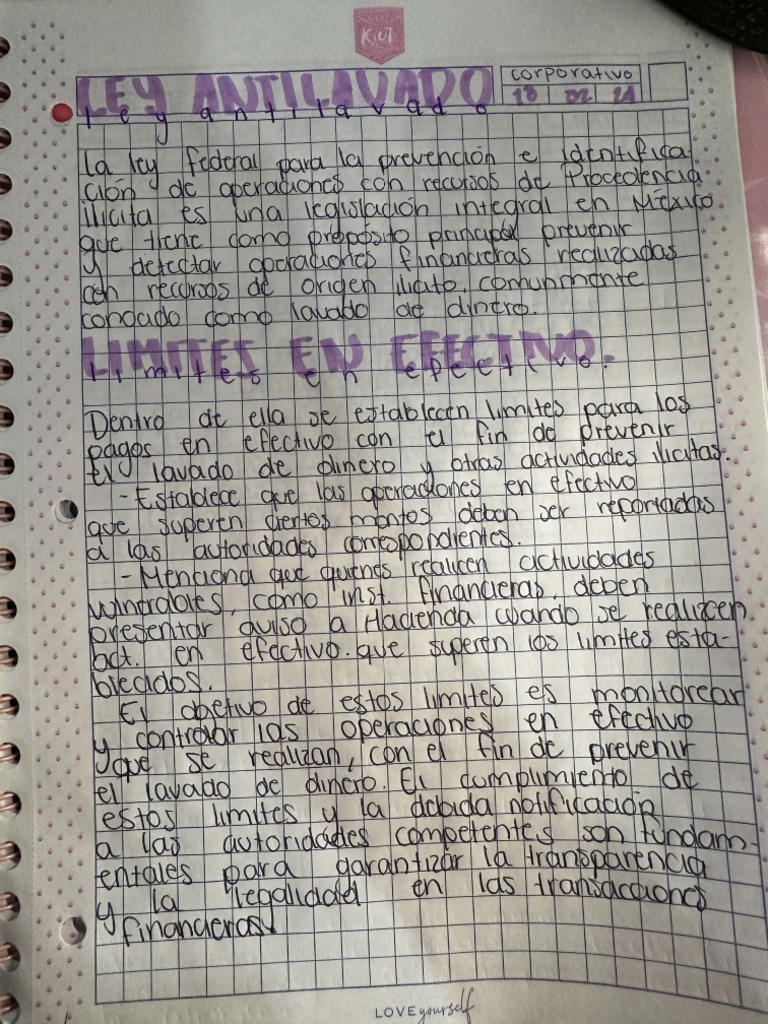 KIUT
LEY ANTILAVADO
corporativo
ley antilavado
18 02 24
La ley federal para la prevención e identifica
ción de operaciones con recursos de Procedencia
ilícita es una legislación integral en México
que tiene como propósito principal prevenir
y detectar operaciones financieras realizadas
con recursos de origen ilícito, comunmente
conocido como lavado de dinero.
LIMITES EN EFECTIVO.
limites en efectivo.
Dentro de ella se establecen limites para los
pagos en efectivo con el fin de prevenir
el lavado de dinero y otras actividades ilicitas.
- Establece que las operaciones en efectivo
que superen ciertos montos deben ser reportadas
a las autoridades correspondientes.
- Menciona que quienes realicen actividades
vulnerables, como inst. financieras, deben
presentar aviso a Hacienda cuando se realizen
act. en efectivo. que superen los limites esta-
blecidos.
El objetivo de estos limites es monitorear
y controlar las operaciones en efectivo
que se realizan, con el fin de prevenir
el lavado de dinero. El cumplimiento de
estos limites y la debida notificación
a las autoridades competentes son fundam-
entales para garantizar la transparencia
y la legalidad en las transacciones
financieras
LOVE yourself